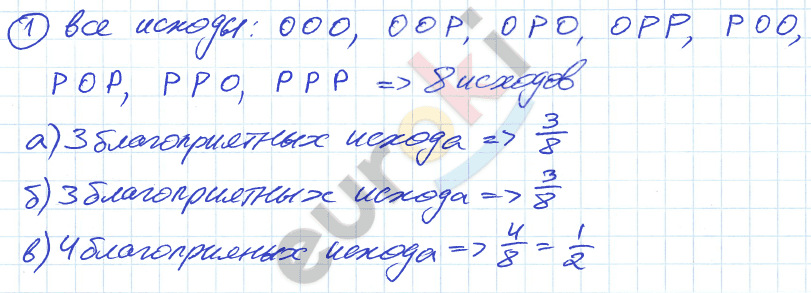 ① все исходы: ООО, ООР, ОРО, ОРР, РОО,
РОР, РРО, РРР => 8 исходов
а) 3 благоприятных исхода => 3/8
б) 3 благоприятных исхода => 3/8
в) 4 благоприяных исхода => 4/8 = 1/2
euroki